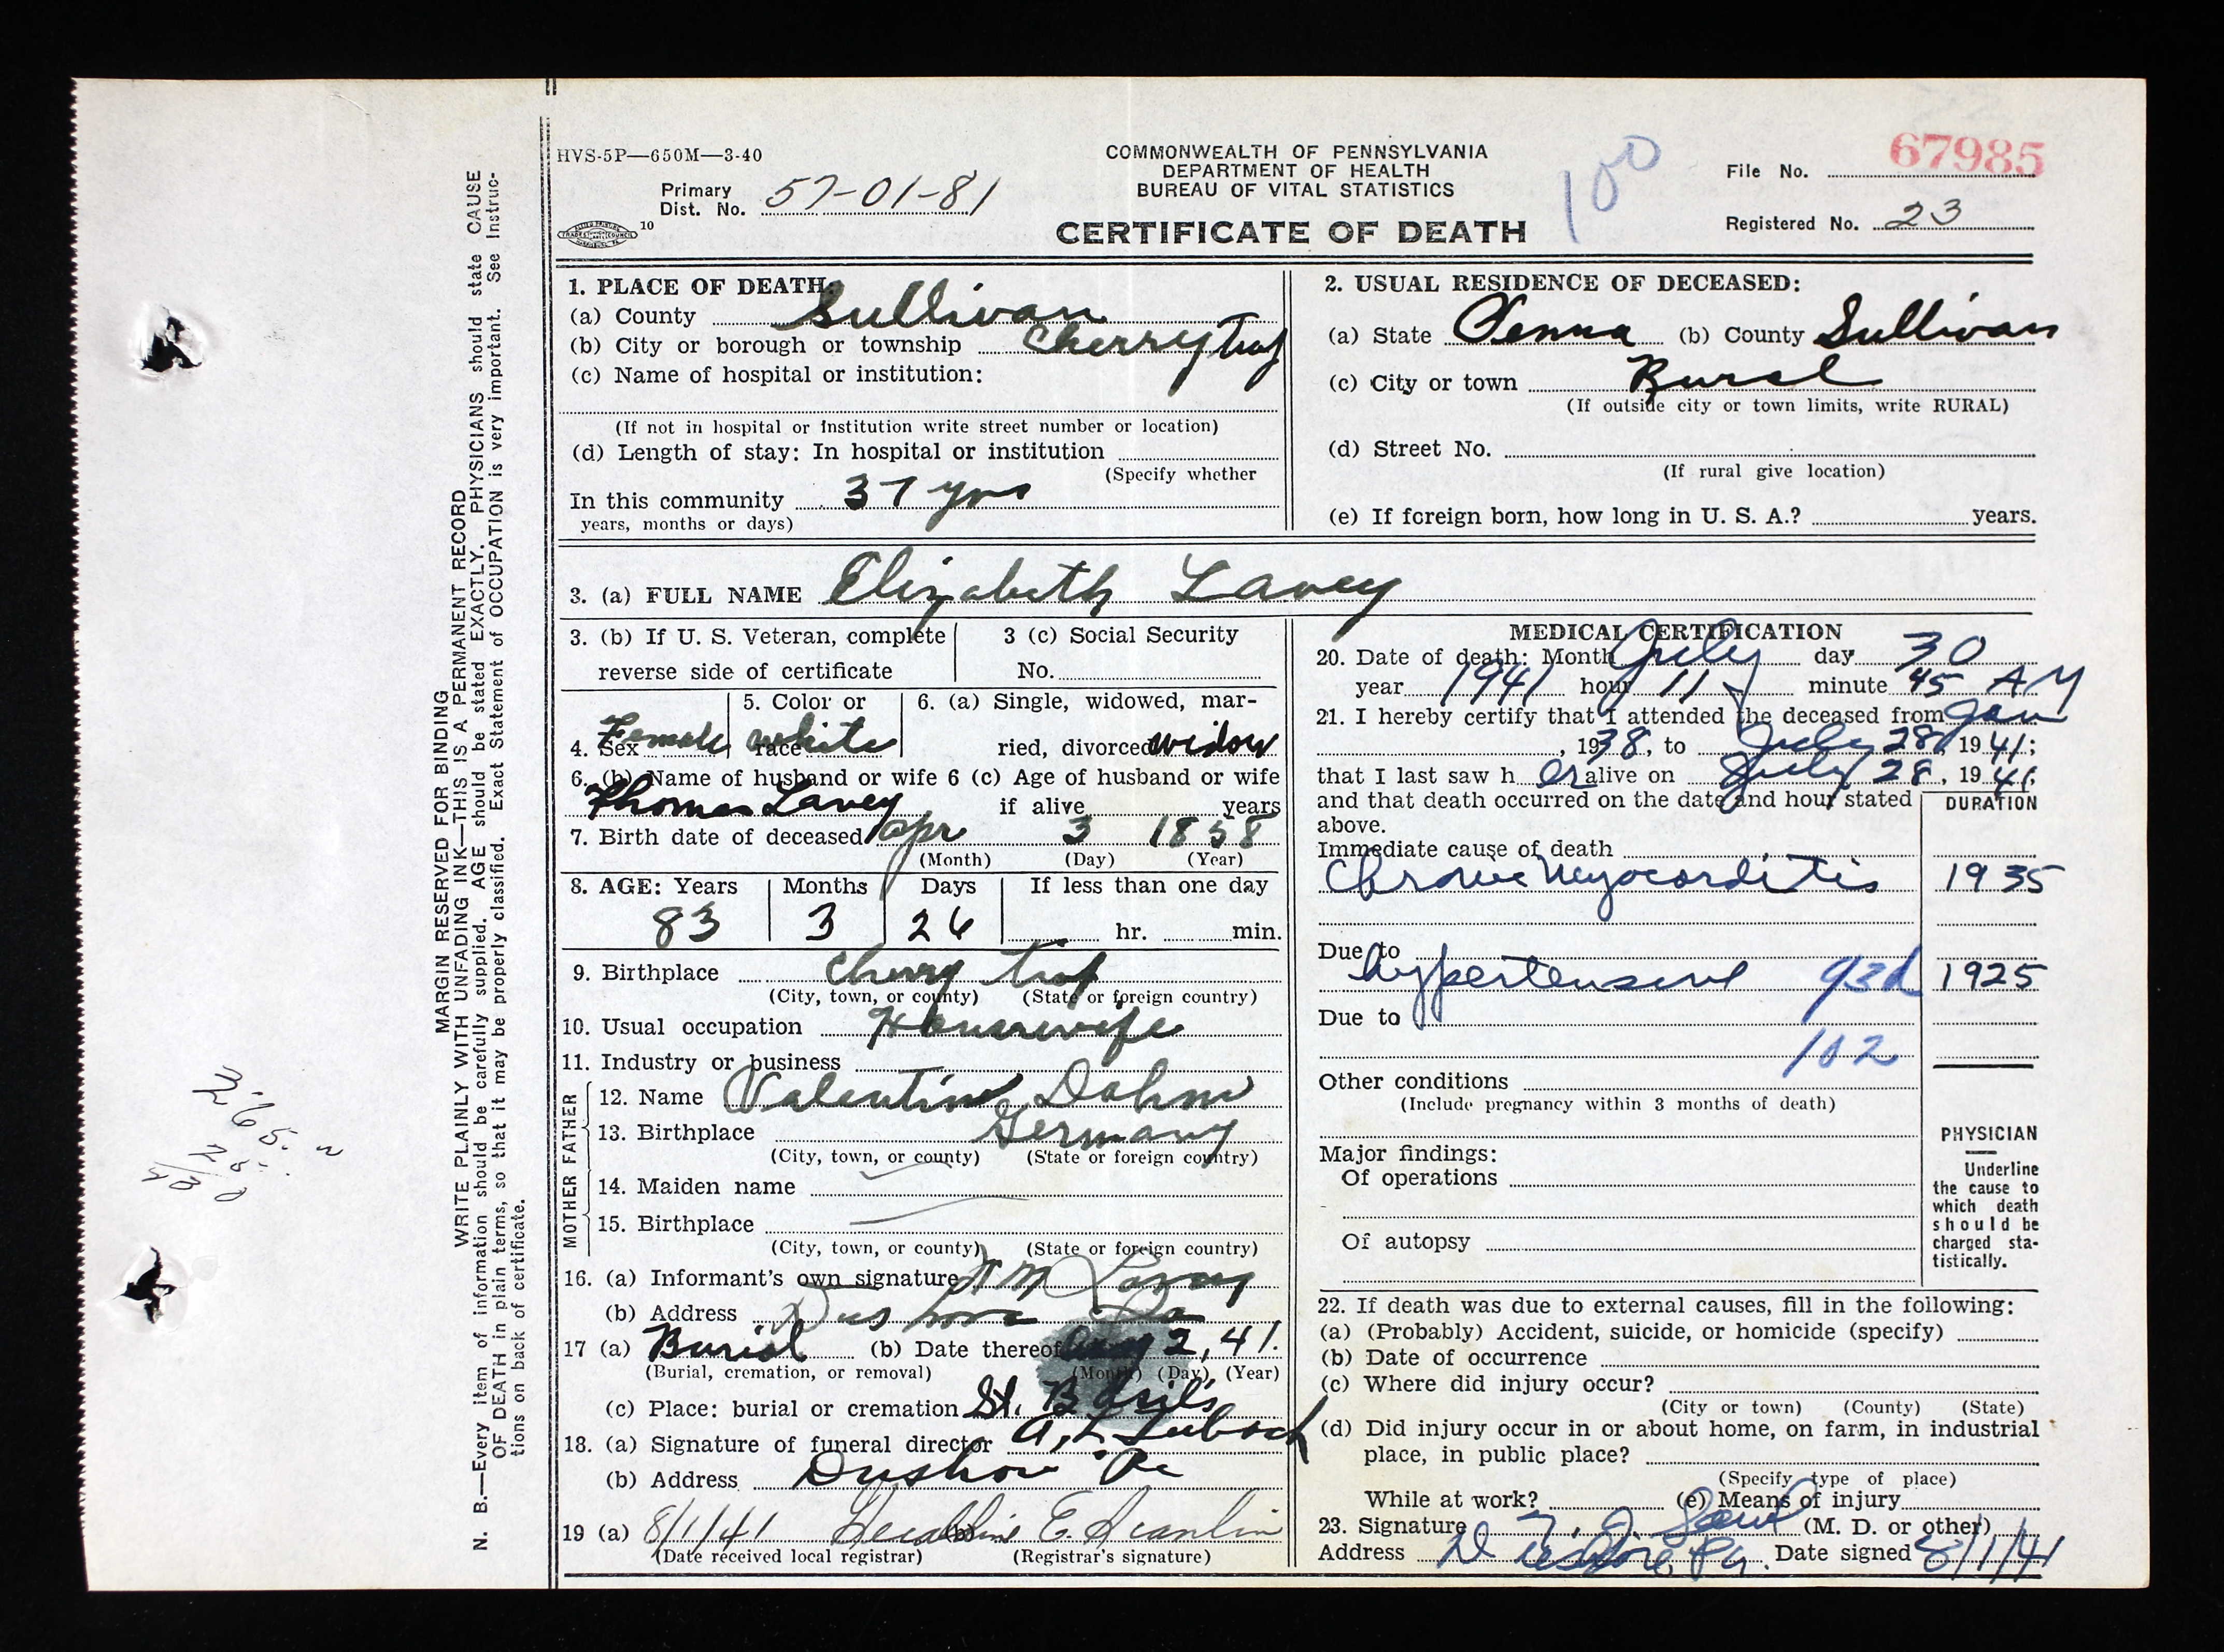 HVS-5P—650M—3-40
COMMONWEALTH OF PENNSYLVANIA
DEPARTMENT OF HEALTH
BUREAU OF VITAL STATISTICS
CERTIFICATE OF DEATH
Primary
Dist. No. 57-01-81
10
100
File No. 67985
Registered No. 23
1. PLACE OF DEATH:
(a) County Sullivan
(b) City or borough or township Cherry Twp
(c) Name of hospital or institution:
(If not in hospital or institution write street number or location)
(d) Length of stay: In hospital or institution
(Specify whether
In this community 37 yrs
years, months or days)
2. USUAL RESIDENCE OF DECEASED:
(a) State Penna (b) County Sullivan
(c) City or town Rural
(If outside city or town limits, write RURAL)
(d) Street No.
(If rural give location)
(e) If foreign born, how long in U. S. A.? years.
3. (a) FULL NAME Elizabeth Lavey
3. (b) If U. S. Veteran, complete
reverse side of certificate
3 (c) Social Security
No.
4. Sex Female
5. Color or
race white
6. (a) Single, widowed, mar-
ried, divorced widow
6. (b) Name of husband or wife 6 (c) Age of husband or wife
Thomas Lavey if alive years
7. Birth date of deceased Apr 3 1858
(Month) (Day) (Year)
8. AGE: Years Months Days If less than one day
83 3 26 hr. min.
9. Birthplace Cherry Twp
(City, town, or county) (State or foreign country)
10. Usual occupation Housewife
11. Industry or business
FATHER
12. Name Valentine Dohm
13. Birthplace Germany
(City, town, or county) (State or foreign country)
MOTHER
14. Maiden name
15. Birthplace
(City, town, or county) (State or foreign country)
16. (a) Informant's own signature Lavey
(b) Address Dushore Pa
17 (a) Burial (b) Date thereof Aug 2, 41.
(Burial, cremation, or removal) (Month) (Day) (Year)
(c) Place: burial or cremation St. Basil's
18. (a) Signature of funeral director
(b) Address Dushore Pa
19 (a) 8/1/41 (b) Geraldine E. Scanlin
(Date received local registrar) (Registrar's signature)
MEDICAL CERTIFICATION
20. Date of death: Month July day 30
year 1941 hour 11 minute 45 AM
21. I hereby certify that I attended the deceased from Jan
, 1938, to July 28, 1941;
that I last saw her alive on July 28, 1941,
and that death occurred on the date and hour stated
above.
DURATION
Immediate cause of death
Chronic Myocarditis 1935
Due to
hypertensive 93d 1925
Due to
102
Other conditions
(Include pregnancy within 3 months of death)
Major findings:
Of operations
Of autopsy
PHYSICIAN
Underline
the cause to
which death
should be
charged sta-
tistically.
22. If death was due to external causes, fill in the following:
(a) (Probably) Accident, suicide, or homicide (specify)
(b) Date of occurrence
(c) Where did injury occur?
(City or town) (County) (State)
(d) Did injury occur in or about home, on farm, in industrial
place, in public place?
(Specify type of place)
While at work? (e) Means of injury
23. Signature (M. D. or other)
Address Dushore, Pa. Date signed 8/1/41
MARGIN RESERVED FOR BINDING
WRITE PLAINLY WITH UNFADING INK—THIS IS A PERMANENT RECORD
N. B.—Every item of information should be carefully supplied. AGE should be stated EXACTLY. PHYSICIANS should state CAUSE
OF DEATH in plain terms, so that it may be properly classified. Exact Statement of OCCUPATION is very important. See Instruc-
tions on back of certificate.